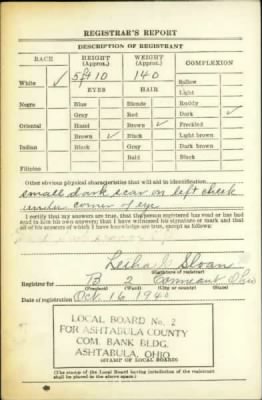 REGISTRAR'S REPORT
DESCRIPTION OF REGISTRANT
RACE HEIGHT (Approx.) WEIGHT (Approx.) COMPLEXION
White ✓ 5 ft 10 140 Sallow
EYES HAIR Light
Negro Blue Blonde Ruddy
Gray Red Dark ✓
Oriental Hazel Brown ✓ Freckled
Brown ✓ Black Light brown
Indian Black Gray Dark brown
Bald Black
Filipino
Other obvious physical characteristics that will aid in identification
small dark scar on left cheek
under corner of eye
I certify that my answers are true; that the person registered has read or has had
read to him his own answers; that I have witnessed his signature or mark and that
all of his answers of which I have knowledge are true, except as follows:
Sloan
(Signature of registrar)
Registrar for B 2 Conneaut Ohio
(Precinct) (Ward) (City or county) (State)
Date of registration Oct. 16 1940
LOCAL BOARD No. 2
FOR ASHTABULA COUNTY
COM. BANK BLDG.
ASHTABULA, OHIO
(STAMP OF LOCAL BOARD)
(The stamp of the Local Board having jurisdiction of the registrant
shall be placed in the above space.)